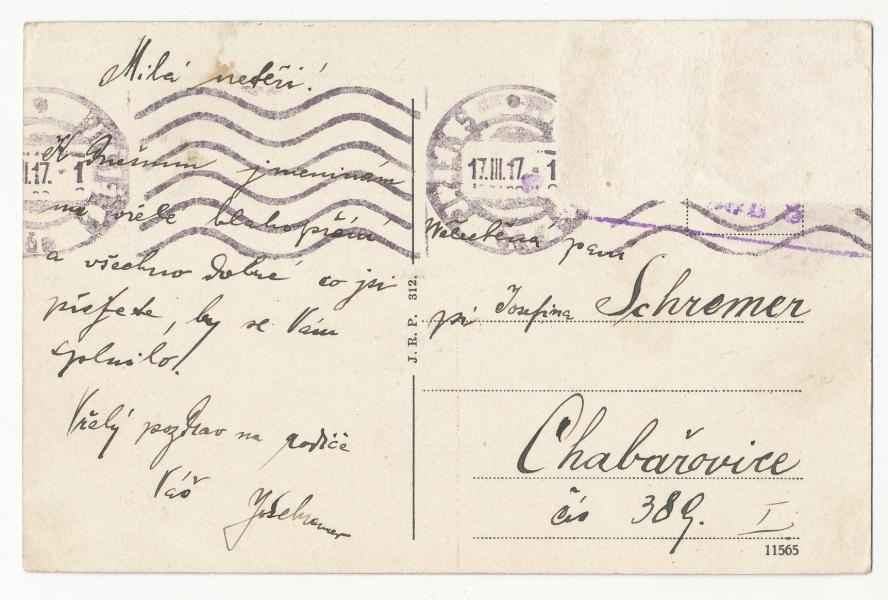 Milá neteři!
K dnešním jmeninám
mé vřelé blahopřání
a všechno dobré co jsi
přejete, by se Vám
splnilo.
Vřelý pozdrav na rodiče
Váš
JoSchremer
17.III.17. - 1
Velectěná paní
pí Josefina Schremer
Chabařovice
čís 389. I
J. R. P. 312.
11565